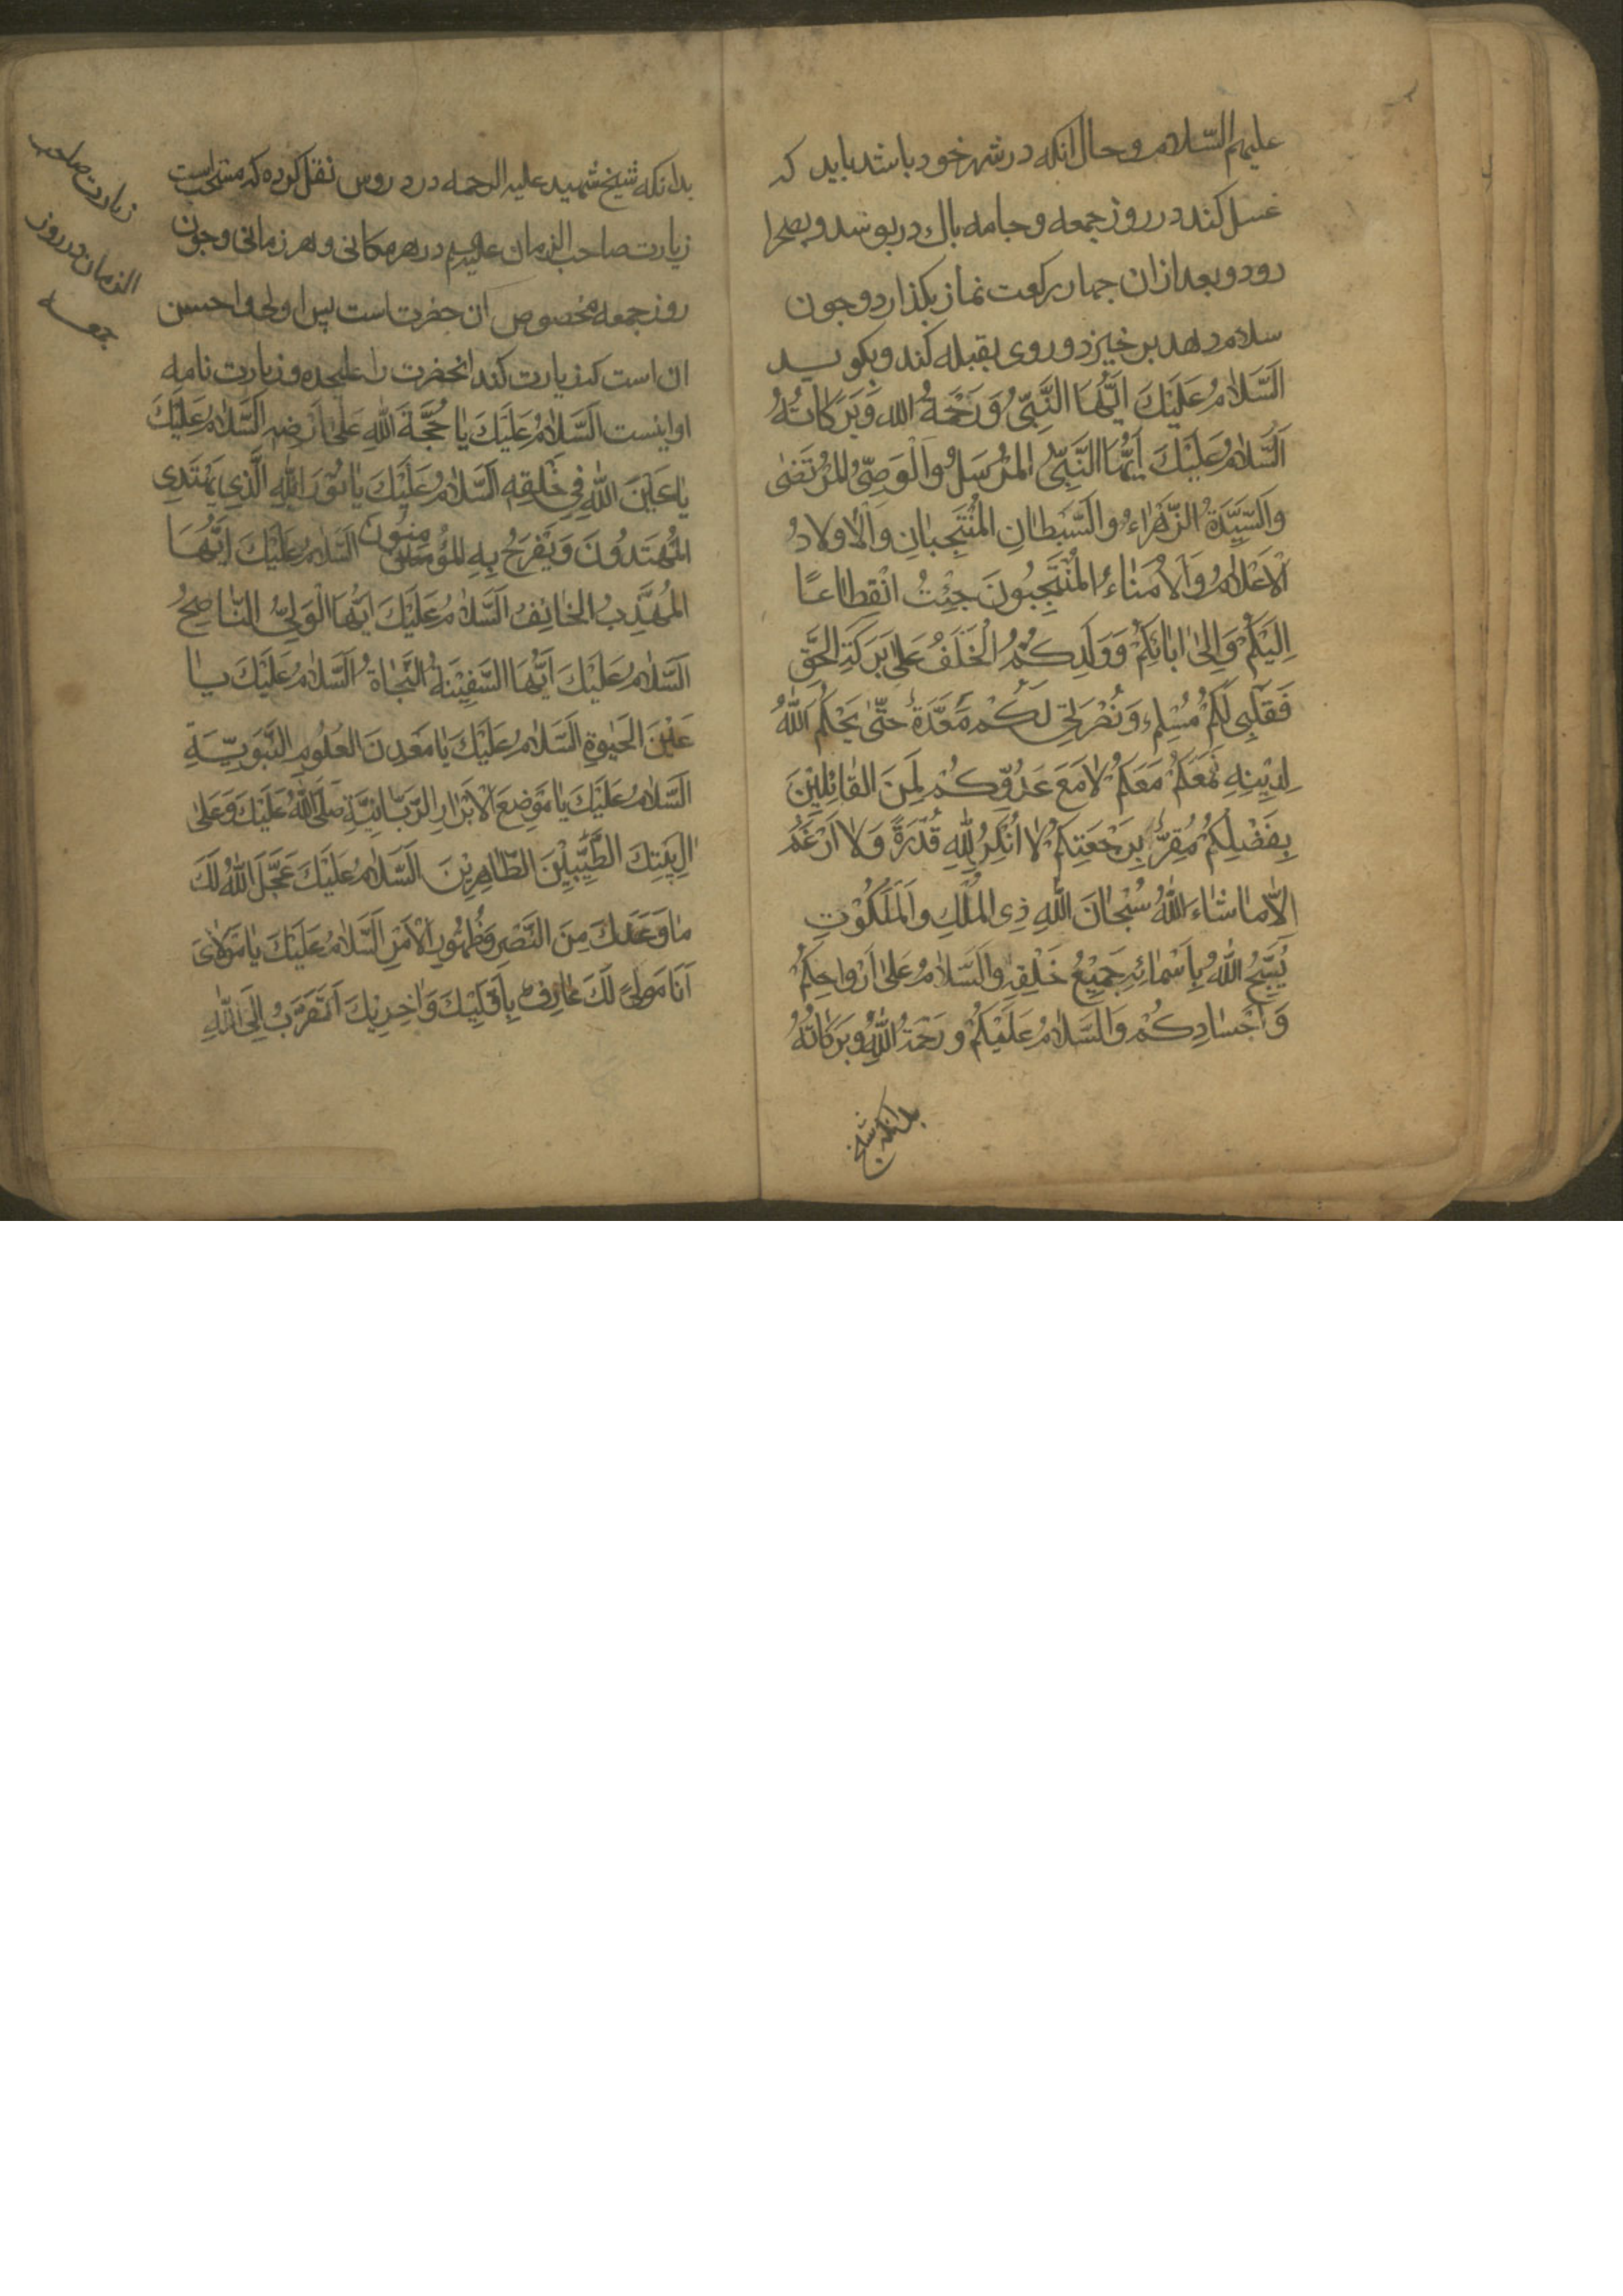 علیهم السّلام و حال آنکه در شهر خود باشد باید که
غسل کند در روز جمعه و جامه باك در بوشد و بصحرا
رود و بعد از ان جهار رکعت نماز بکذارد و جون
سلام دهد بر خیزد و روی بقبله کند و بکوید
اَلسَّلامُ عَلَيْكَ اَيُّهَا النَّبِيُّ وَرَحْمَةُ الله وَبَرَكاتُهُ
اَلسَّلامُ عَلَيْكَ اَيُّهَا النَّبِيُّ المُرْسَلُ وَالْوَصِيُّ المُرْتَضىٰ
وَالسَّيِّدَةُ الزَّهْراءُ وَالسِّبْطانِ المُنْتَجَبانِ وَالْاَولادُ
الْاَعْلامُ وَالْاُمَناءُ المُنْتَجَبُونَ جِئْتُ انْقِطاعًا
اِلَيْكُمْ وَاِلىٰ ابائِكُمْ وَوَلَدِكُمُ الْخَلَفُ عَلىٰ بَرَكَةِ الحَقِّ
فَقَلْبِي لَكُمْ مُسْلِم وَنُصْرَتِي لَكُمْ مُعَدَّةٌ حَتّىٰ يَحْكُمَ اللهُ
لِدِيْنِهِ فَمَعَكُمْ مَعَكُمْ لا مَعَ عَدُوِّكُمْ لَمِنَ القائِلِيْنَ
بِفَضْلِكُمْ مُقِرٌّ بِرَجْعَتِكُمْ لا اُنْكِرُ لِلهِ قُدْرَةً وَلا اَزْعَمُ
اِلّا ما شاءَ اللهُ سُبْحانَ اللهِ ذِی المُلْكِ وَالمَلَكُوْتِ
يُسَبِّحُ اللهُ بِاَسْمائِهِ جَمِيْعُ خَلْقِهِ وَالسَّلامُ عَلىٰ اَرْواحِكُمْ
وَاَجْسادِكُمْ وَالسَّلامُ عَلَيْكُمْ وَرَحْمَةُ اللهِ وَبَرَكاتُهُ
بدانکه شیخ
بدانکه شیخ شهید علیه الرحمه در دروس نقل کرده که مستحب است
زیارت صاحب الزمان علیه السلم در هر مکانی و هر زمانی و جون
روز جمعه مخصوص ان حضرت است بس اولی و احسن
ان است که زیارت کند انحضرت را علیحده و زیارت نامه
او اینست اَلسَّلامُ عَلَيْكَ يا حُجَّةَ اللهِ عَلىٰ اَرْضِهِ اَلسَّلامُ عَلَيْكَ
يا عَيْنَ اللهِ فِي خَلْقِهِ اَلسَّلامُ عَلَيْكَ يا نُوْرَ اللهِ الَّذِي يَهْتَدِي
بِهِ المُهْتَدُونَ وَيُفَرَّجُ بِهِ المُؤْمِنُونَ اَلسَّلامُ عَلَيْكَ اَيُّهَا
المُهَذَّبُ الخائِفُ اَلسَّلامُ عَلَيْكَ اَيُّهَا الْوَلِيُّ النّاصِحُ
اَلسَّلامُ عَلَيْكَ اَيُّهَا السَّفِيْنَةُ النَّجاةُ اَلسَّلامُ عَلَيْكَ يا
عَيْنَ الحَيٰوةِ اَلسَّلامُ عَلَيْكَ يا مَعْدِنَ العُلُومِ النَّبَوِيَّةِ
اَلسَّلامُ عَلَيْكَ يا مَوْضِعَ الْاَبْرارِ الرَّبّانِيَّةِ صَلَّى اللهُ عَلَيْكَ وَعَلىٰ
الِ بَيْتِكَ الطَّيِّبِيْنَ الطّاهِرِيْنَ اَلسَّلامُ عَلَيْكَ عَجَّلَ اللهُ لَكَ
ما وَعَدَكَ مِنَ النَّصْرِ وَظُهُورِ الْاَمْرِ اَلسَّلامُ عَلَيْكَ يا مَوْلاىَ
اَنَا مَوْلىً لَكَ عارِفٌ بِاُوْلَيِكَ وَاُخْرِيكَ اَتَقَرَّبُ اِلَى اللهِ
زیارت صاحب
الزمان در روز
جمعه